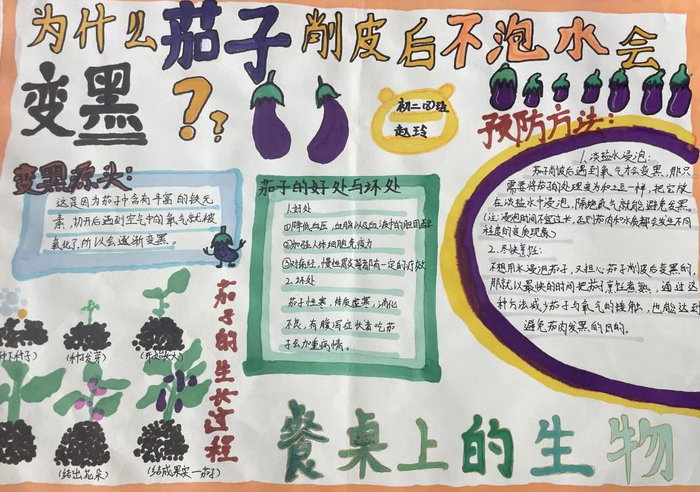 为什么茄子削皮后不泡水会
变黑??
初二(3)班
赵玲
预防方法:
变黑源头:
这是因为茄子中含有丰富的铁元
素,切开后遇到空气中的氧气就被
氧化了,所以会逐渐变黑。
茄子的好处与坏处
1.好处
①降低血压,血脂以及血液中的胆固醇
②加强人体细胞免疫力
③对痛经,慢性胃炎等都有一定的疗效
2.坏处
茄子性寒,体质虚寒,消化
不良,有腹泻症状者吃茄
子会加重病情。
1.淡盐水浸泡:
茄肉削皮后遇到氧气才会变黑,那只
需要将茄子的处理变为和土豆一样,把它放
在淡盐水中浸泡,隔绝氧气就能避免变黑。
(注:浸泡时间不宜过长,否则茄肉和水质都会发生不同
程度的变质现象)
2.尽快烹饪:
不想用水浸泡茄子,又担心茄子削皮后变黑的,
那就以最快的时间把茄子烹饪煮熟,通过这
种方法减少茄子与氧气的接触,也能达到
避免茄肉变黑的目的。
茄子的生长过程
(种下种子)
(种子发芽)
(开始长大)
(结出花朵)
(结成果实一茄子)
餐桌上的生物